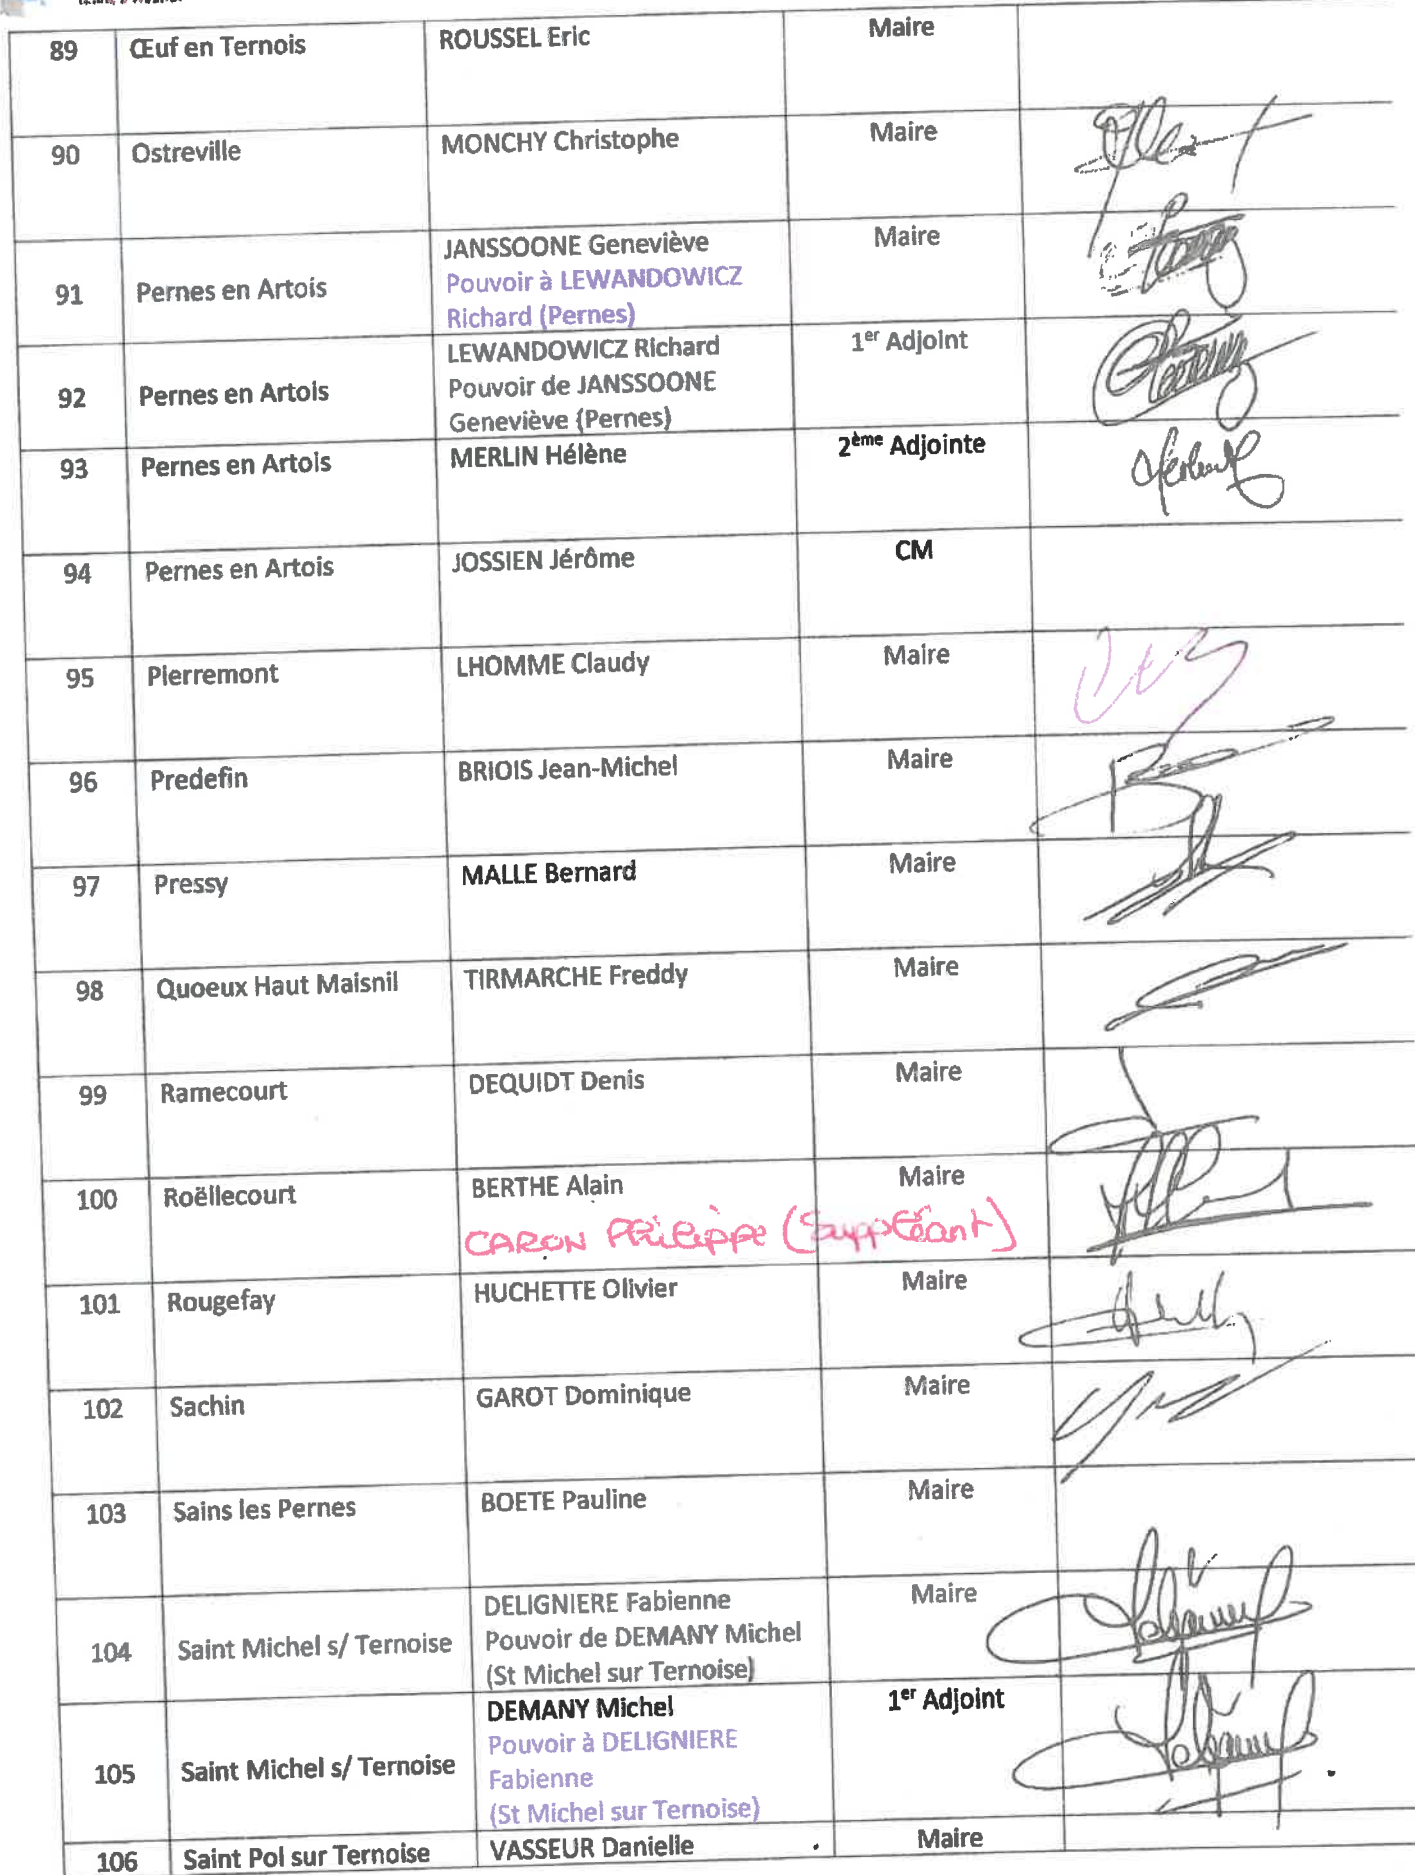 89 Œuf en Ternois ROUSSEL Eric Maire
90 Ostreville MONCHY Christophe Maire
91 Pernes en Artois JANSSOONE Geneviève Maire
Pouvoir à LEWANDOWICZ
Richard (Pernes)
92 Pernes en Artois LEWANDOWICZ Richard 1er Adjoint
Pouvoir de JANSSOONE
Geneviève (Pernes)
93 Pernes en Artois MERLIN Hélène 2ème Adjointe
94 Pernes en Artois JOSSIEN Jérôme CM
95 Pierremont LHOMME Claudy Maire
96 Predefin BRIOIS Jean-Michel Maire
97 Pressy MALLE Bernard Maire
98 Quoeux Haut Maisnil TIRMARCHE Freddy Maire
99 Ramecourt DEQUIDT Denis Maire
100 Roëllecourt BERTHE Alain Maire
CARON Philippe (Suppléant)
101 Rougefay HUCHETTE Olivier Maire
102 Sachin GAROT Dominique Maire
103 Sains les Pernes BOETE Pauline Maire
104 Saint Michel s/ Ternoise DELIGNIERE Fabienne Maire
Pouvoir de DEMANY Michel
(St Michel sur Ternoise)
105 Saint Michel s/ Ternoise DEMANY Michel 1er Adjoint
Pouvoir à DELIGNIERE
Fabienne
(St Michel sur Ternoise)
106 Saint Pol sur Ternoise VASSEUR Danielle Maire